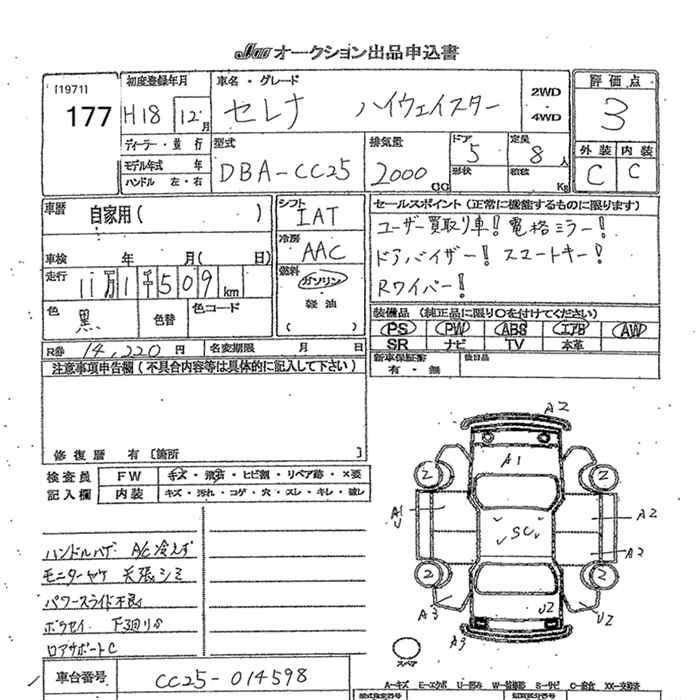 JAA オークション出品申込書
[1971]
177
初度登録年月
H18 12月
車名・グレード
セレナ ハイウェイスター
2WD
・
4WD
評価点
3
外装 内装
C C
ディーラー・並行
モデル年式 年
ハンドル 左・右
型式
DBA-CC25
排気量
2000 CC
ドア
5
形状
定員
8人
積載
Kg
車歴
自家用( )
車検 年 月( 日)
走行 11万1千509km
色 黒 色替 色コード
シフト
IAT
冷房
AAC
燃料
ガソリン
・
軽油
( )
セールスポイント(正常に機能するものに限ります)
ユーザー買取り車! 電格ミラー!
ドアバイザー! スマートキー!
Rワイパー!
装備品(純正品に限り〇を付けてください)
PS PW ABS エアB AW
SR ナビ TV 本革
新車保証書
有・無
後日品
R券 14,220円 名変期限 月 日
注意事項申告欄(不具合内容等は具体的に記入して下さい)
修復歴 有〔箇所 〕
検査員
記入欄
FW キズ・飛石・ヒビ割・リペア跡・×要
内装 キズ・汚れ・コゲ・穴・スレ・キレ・破レ
ハンドルハゲ A/C冷えず
モニターヤケ 天張シミ
パワースライド不良
ボラセイ 下回りサ
ロアサポートC
車台番号 CC25-014598
A2
A1
2 2
A1
U
A2
SC
A2
2 2
A3
U2
U2
A3
スペア
A=キズ E=エクボ U=凹み W=補修跡 S=サビ C=腐食 XX=交換済